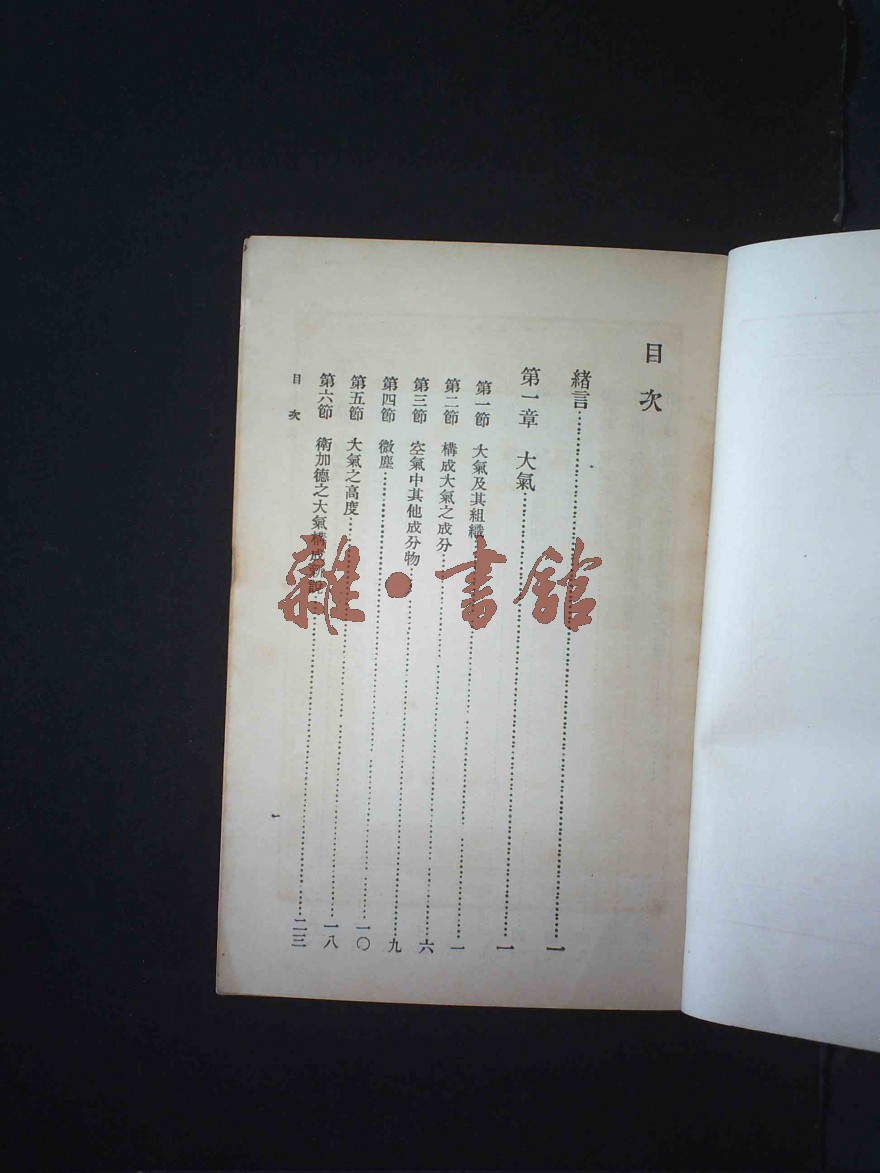 目次
緒言……一
第一章 大氣……一
第一節 大氣及其組織……一
第二節 構成大氣之成分……六
第三節 空氣中其他成分物……九
第四節 微塵……一〇
第五節 大氣之高度……一八
第六節 衛加德之大氣構成新說……二三
目次 一
雜•書館